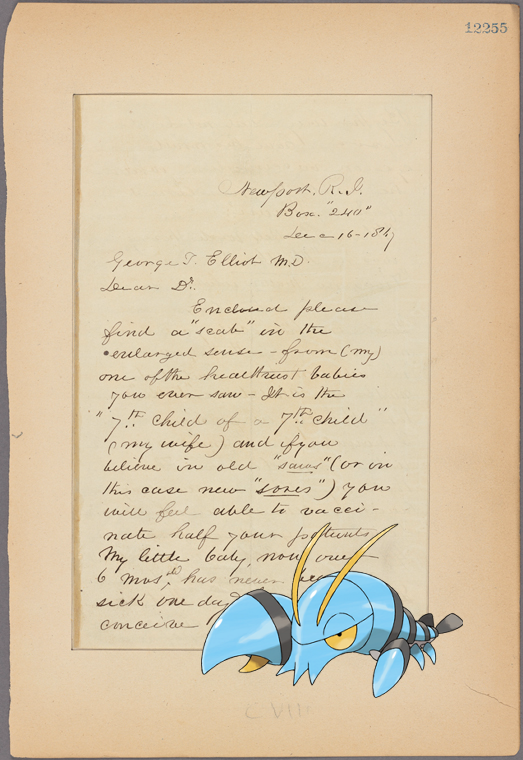 12255
Newport. R.I.
Box. "240"
Dec 16-1867
George T. Elliot M.D.
Dear Dr.
Enclosed please
find a "scab" in the
enlarged sense - from (my)
one of the healthiest babies
you ever saw - It is the
"7th child of a 7th child"
(my wife) and if you
believe in old "saws" (or in
this case new "sores") you
will feel able to vacci-
nate half your patients
My little baby, now over
6 mos, has never
sick one day
conceive
C VII